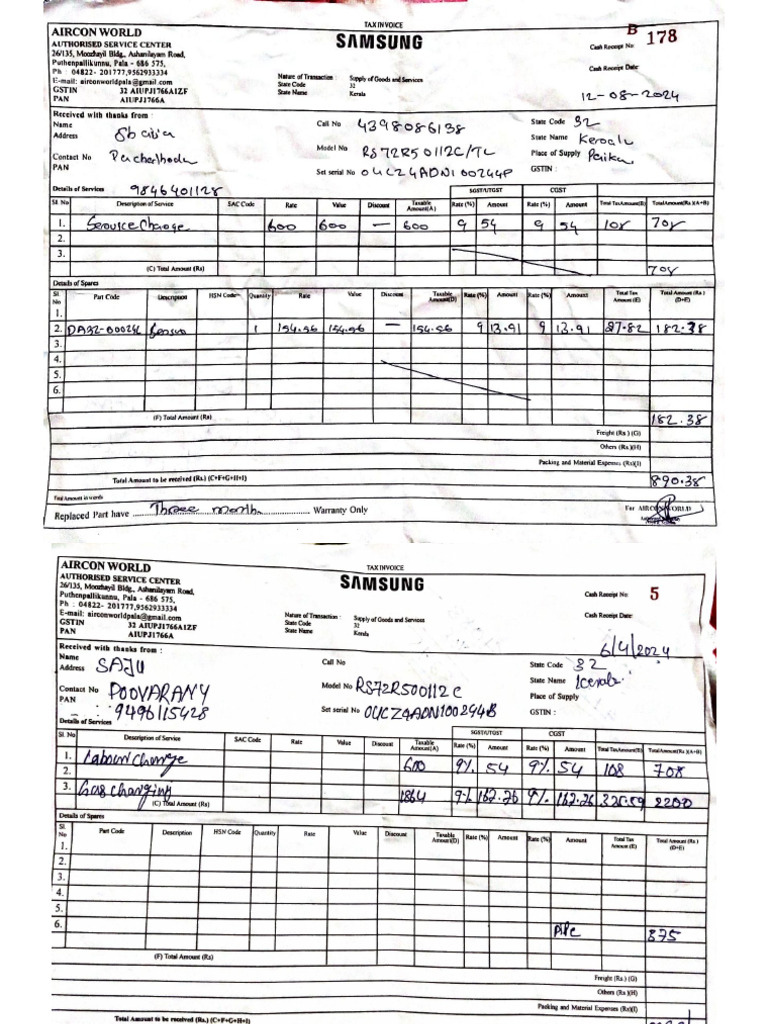 TAX INVOICE
AIRCON WORLD
AUTHORISED SERVICE CENTER
26/135, Moozhayil Bldg., Ashanilayam Road,
Puthenpallikunnu, Pala - 686 575,
Ph : 04822- 201777,9562933334
E-mail: airconworldpala@gmail.com
GSTIN 32 AIUPJ1766A1ZF
PAN AIUPJ1766A
SAMSUNG
Nature of Transaction : Supply of Goods and Services
State Code 32
State Name Kerala
Cash Receipt No: B 178
Cash Receipt Date:
12-08-2024
Received with thanks from :
Name
Address
Contact No
PAN
Call No 4398086138
Model No RS72R50112C/TL
Set serial No 0UCZ4ADN100244P
State Code 32
State Name Kerala
Place of Supply
GSTIN :
Details of Services 9846401128
Sl No Description of Service SAC Code Rate Value Discount Taxable Amount(A) SGST/UTGST Rate (%) Amount CGST Rate (%) Amount Total TaxAmount(B) Total Amount(Rs )(A+B)
1. Service Charge 600 600 — 600 9 54 9 54 108 708
2.
3.
(C) Total Amount (Rs) 708
Details of Spares
Sl No Part Code Description HSN Code Quantity Rate Value Discount Taxable Amount(D) Rate (%) Amount Rate (%) Amount Total Tax Amount (E) Total Amount (Rs ) (D+E)
1.
2. DA32-00024L Sensor 1 154.56 154.56 — 154.56 9 13.91 9 13.91 27.82 182.38
3.
4.
5.
6.
(F) Total Amount (Rs) 182.38
Freight (Rs ) (G)
Others (Rs )(H)
Packing and Material Expenses (Rs)(I)
Total Amount to be received (Rs.) (C+F+G+H+I) 890.38
Total Amount in words
Replaced Part have Three month Warranty Only
For AIRCON WORLD
TAX INVOICE
AIRCON WORLD
AUTHORISED SERVICE CENTER
26/135, Moozhayil Bldg., Ashanilayam Road,
Puthenpallikunnu, Pala - 686 575,
Ph : 04822- 201777,9562933334
E-mail: airconworldpala@gmail.com
GSTIN 32 AIUPJ1766A1ZF
PAN AIUPJ1766A
SAMSUNG
Nature of Transaction : Supply of Goods and Services
State Code 32
State Name Kerala
Cash Receipt No: 5
Cash Receipt Date:
6/4/2024
Received with thanks from :
Name SAJU
Address
Contact No POOVARANY
PAN 9496115428
Call No
Model No RS72R500112C
Set serial No 0UCZ4ADN100294B
State Code 32
State Name Kerala
Place of Supply
GSTIN :
Details of Services
Sl. No Description of Service SAC Code Rate Value Discount Taxable Amount(A) SGST/UTGST Rate (%) Amount CGST Rate (%) Amount Total TaxAmount(B) Total Amount(Rs )(A+B)
1. Labour Charge 600 9% 54 9% 54 108 708
2.
3. Gas Charging 1864 9% 162.26 9% 162.26 325.59 2200
(C) Total Amount (Rs)
Details of Spares
Sl. No Part Code Description HSN Code Quantity Rate Value Discount Taxable Amount(D) Rate (%) Amount Rate (%) Amount Total Tax Amount (E) Total Amount (Rs ) (D+E)
1.
2.
3.
4.
5.
6. 875
(F) Total Amount (Rs)
Freight (Rs ) (G)
Others (Rs )(H)
Packing and Material Expenses (Rs)(I)
Total Amount to be received (Rs.) (C+F+G+H+I)